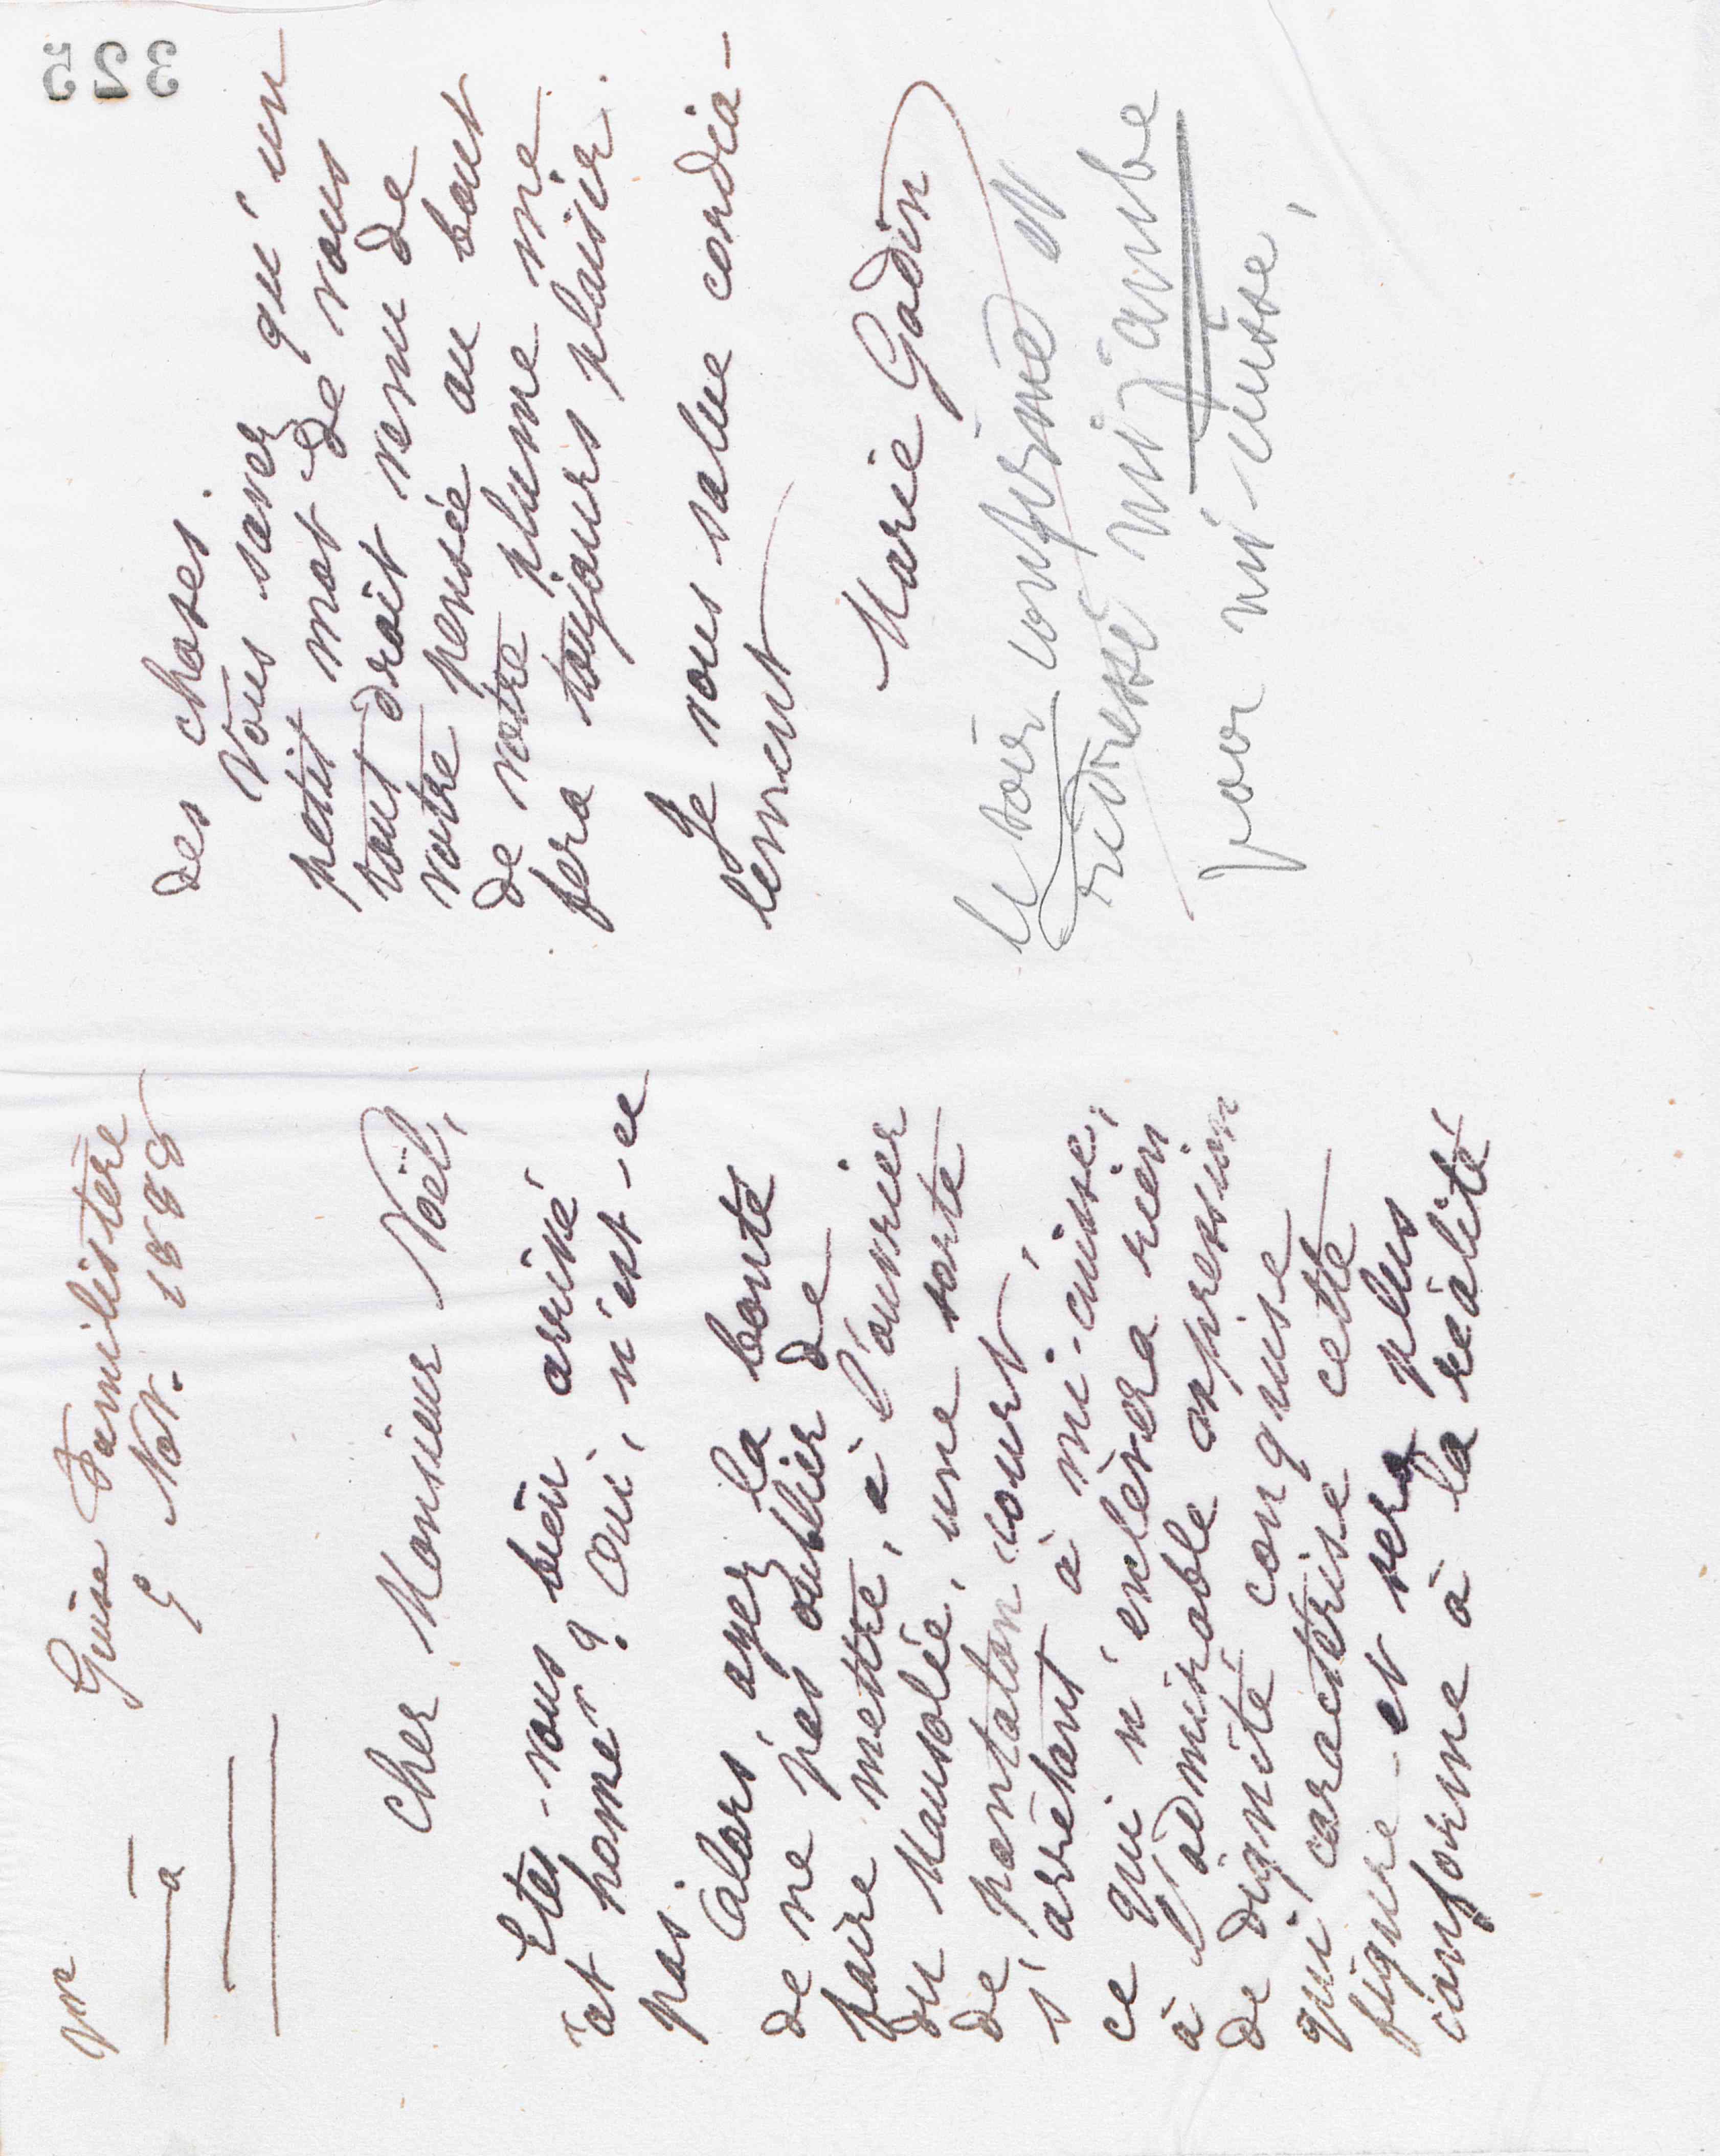 Guise Familistère
9 Nov. 1888
Cher Monsieur Noël,
Etes-vous bien arrivé
"at home"? Oui, n'est-ce
pas.
Alors, ayez la bonté
de ne pas oublier de
faire mettre, à l'ouvrier
du Mausolée, une sorte
de pantalon court,
s'arrêtant à mi-cuisse,
ce qui n'enlèvera rien
à l'admirable expression
de dignité conquise
qui caractérise cette
figure - et sera plus
conforme à la réalité
des choses.
Vous savez qu'un
petit mot de vous
tout droit venu de
votre pensée au bout
de votre plume me
fera toujours plaisir.
Je vous salue cordia-
lement
Marie Godin
le soir confirmé et
redressé mi jambe
pour mi cuisse,
325